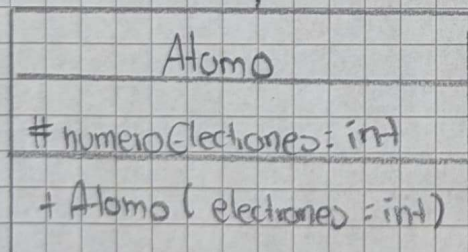 Atomo
# numeroElectrones: int
+ Atomo ( electrones = int)